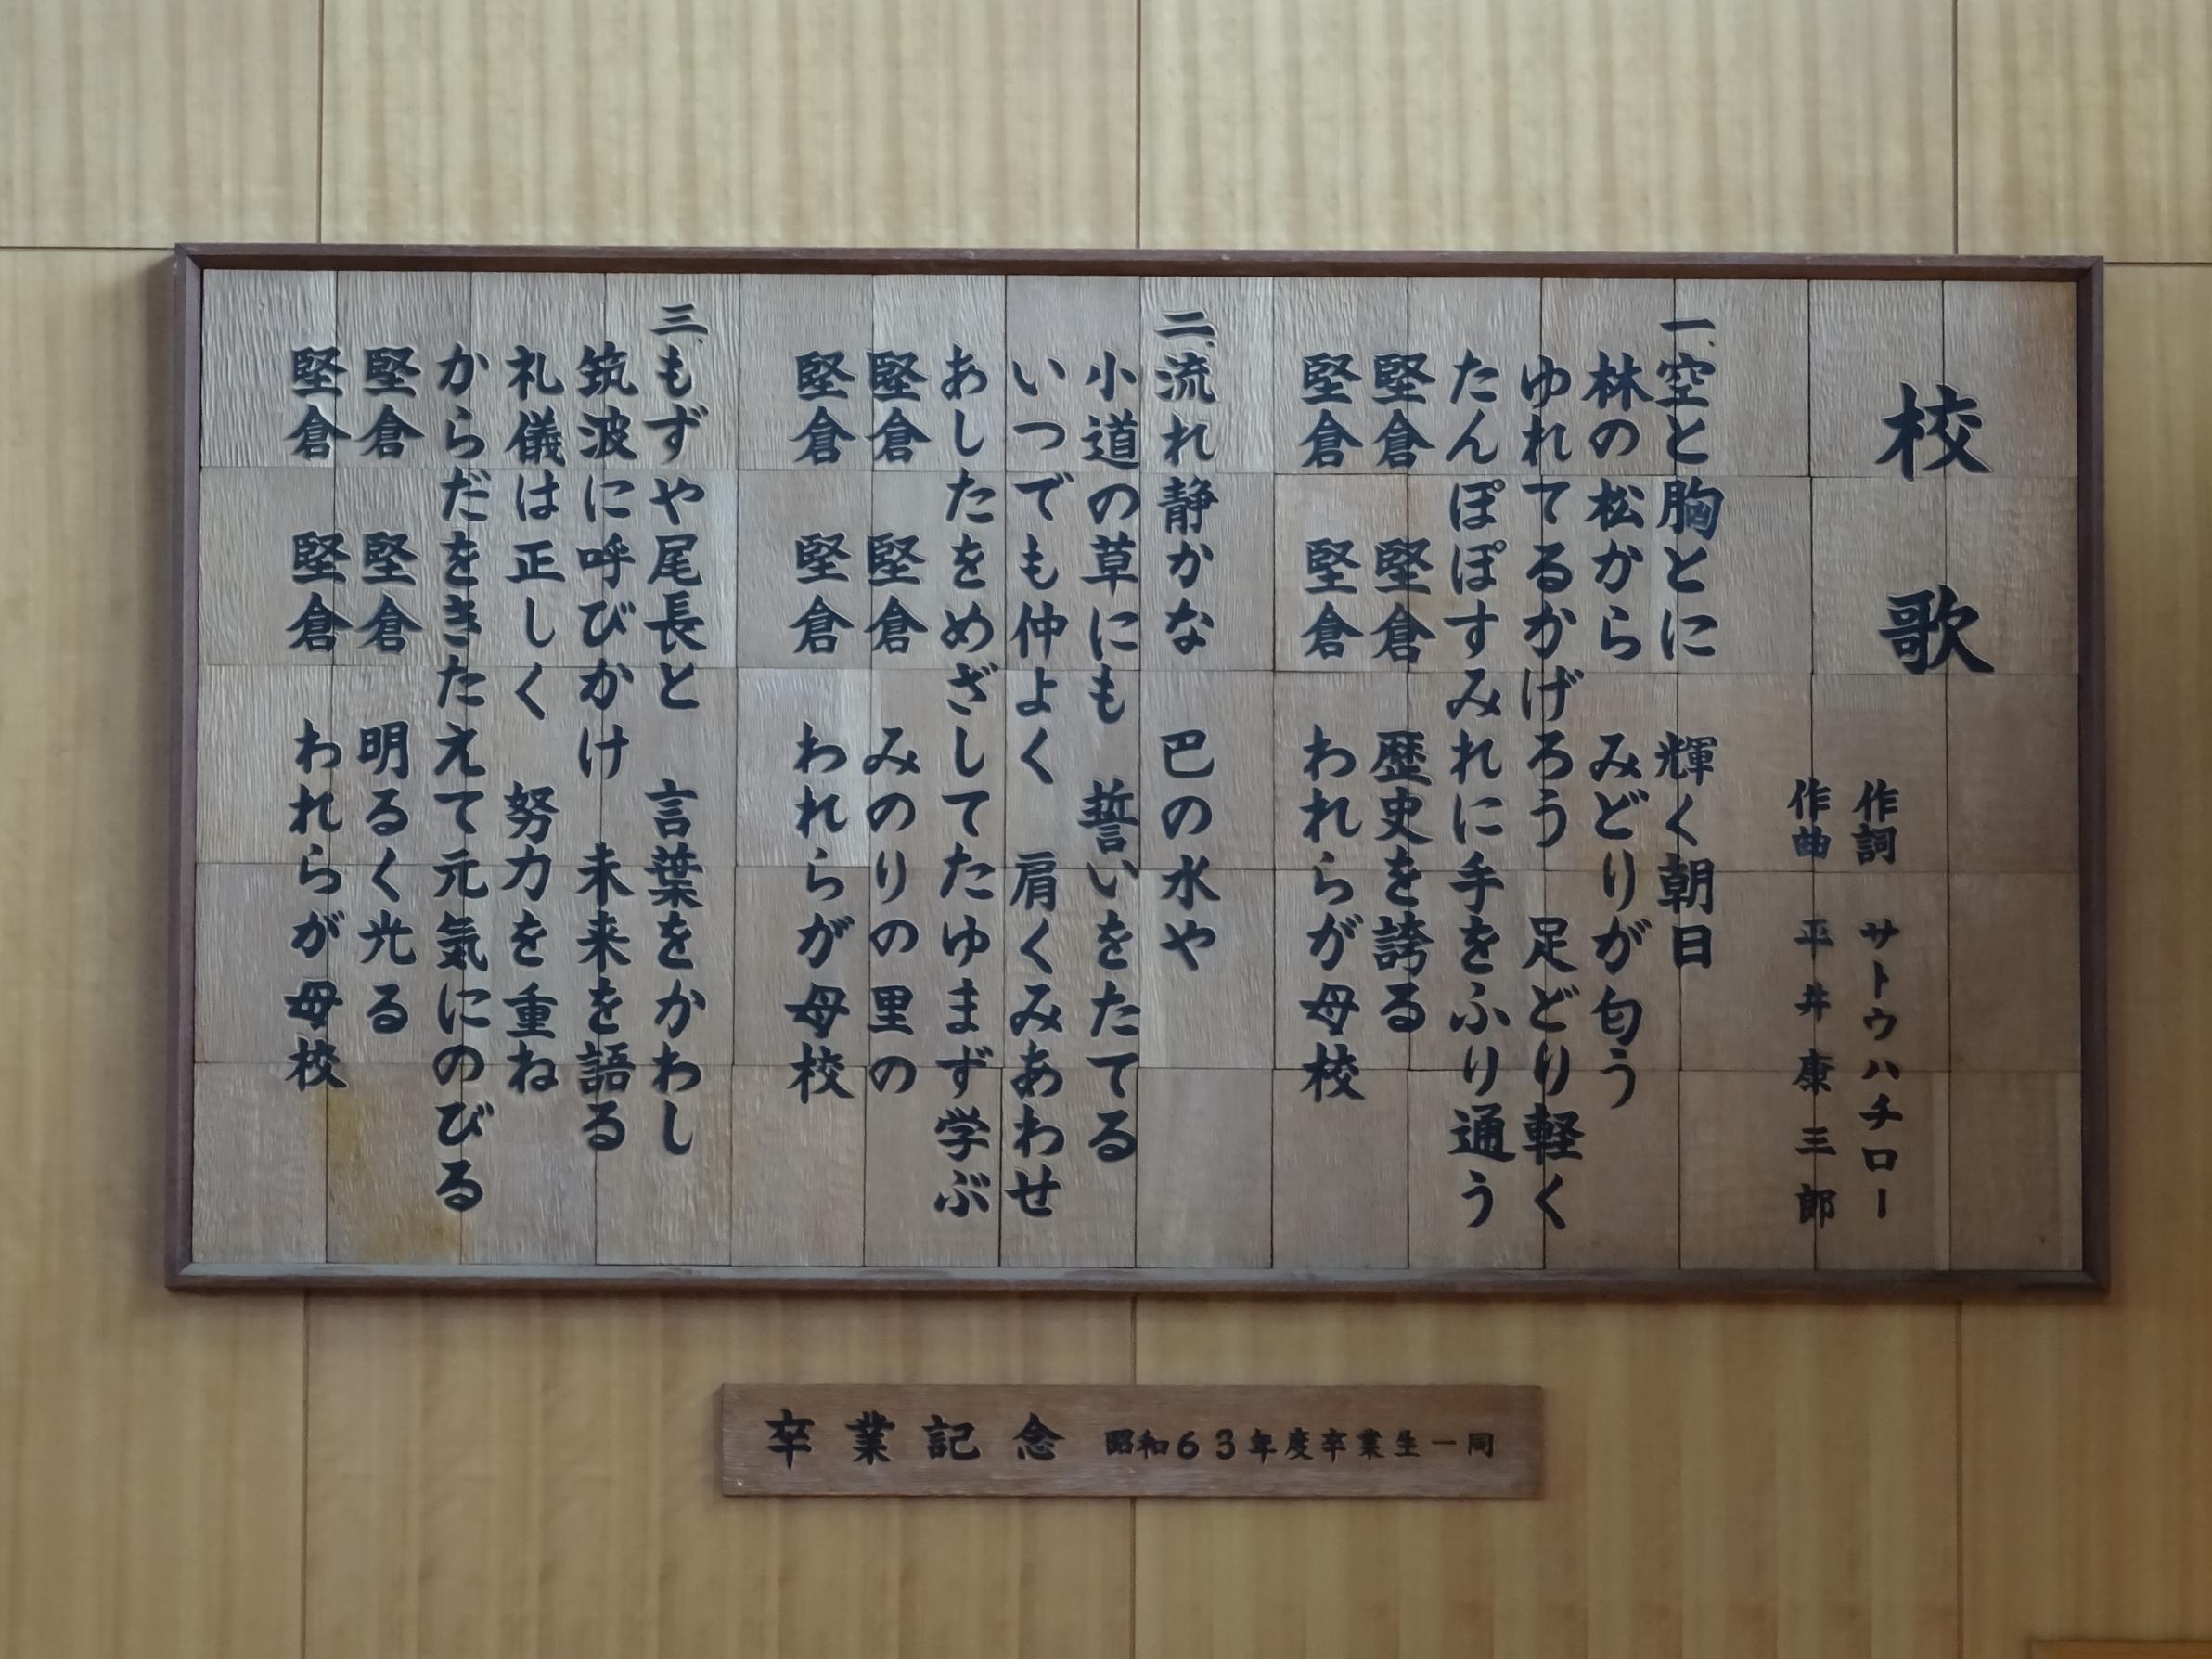 校歌
作詞 サトウハチロー
作曲 平井康三郎
一、空と胸とに 輝く朝日
林の松から みどりが匂う
ゆれてるかげろう 足どり軽く
たんぽぽすみれに手をふり通う
堅倉 堅倉 歴史を誇る
堅倉 堅倉 われらが母校
二、流れ静かな 巴の水や
小道の草にも 誓いをたてる
いつでも仲よく 肩くみあわせ
あしたをめざしてたゆまず学ぶ
堅倉 堅倉 みのりの里の
堅倉 堅倉 われらが母校
三、もずや尾長と 言葉をかわし
筑波に呼びかけ 未来を語る
礼儀は正しく 努力を重ね
からだをきたえて元気にのびる
堅倉 堅倉 明るく光る
堅倉 堅倉 われらが母校
卒業記念 昭和63年度卒業生一同